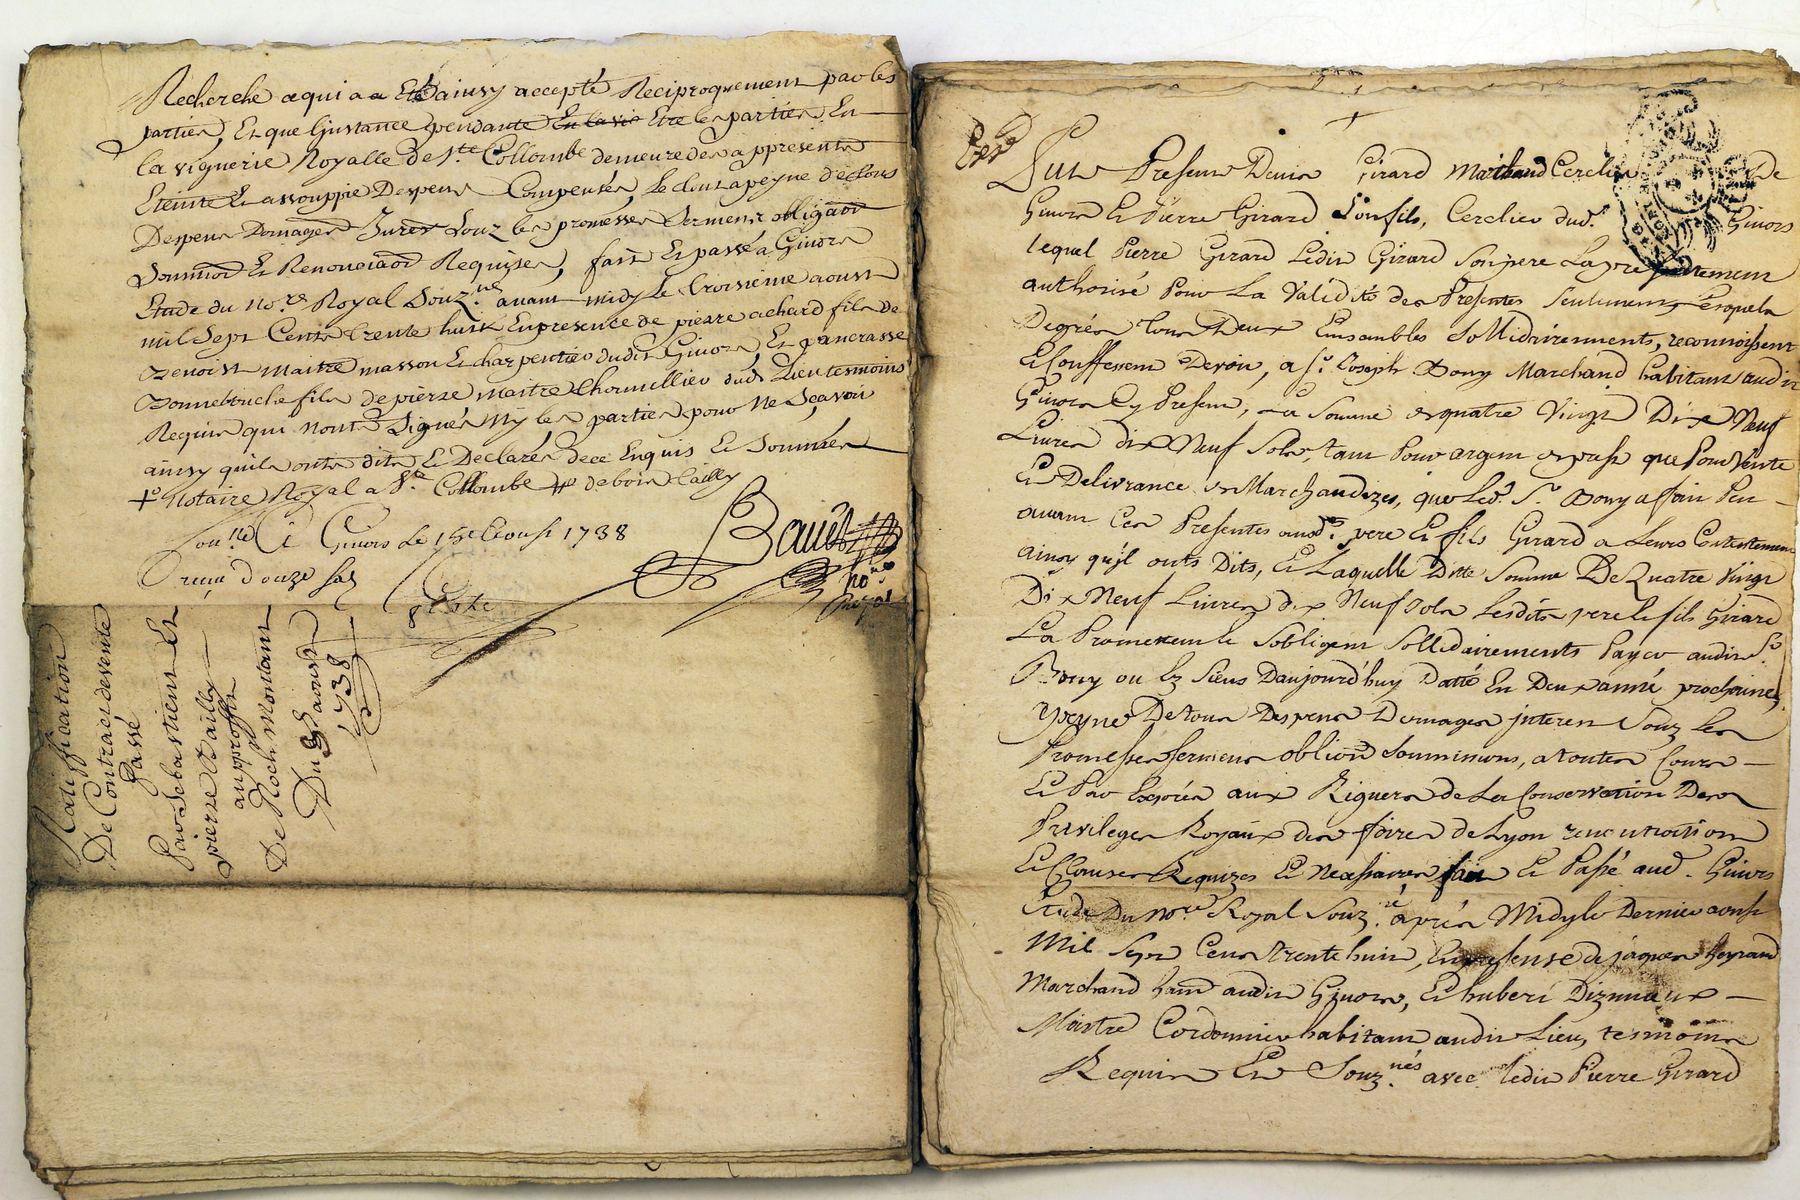 Recherche cequi a a Eté ainsy accepté Reciproquement par les
parties, Et que Ljnstance pendante En la vi Etre les parties En
la viguerie Royalle de Ste Collombe demeure des a ppresents
Eteinte Et assouppie Despens Compensés, le tout apeyne de tous
Despens Domages Jnrest Souz les promesses Serment obligaon
Soumiòn Et Renonciaon Requises, fait Et passé a Givors
Etude du No.re Royal Souz.né avant midy le troisieme aoust
mil Sept Cents trente huit En presence de pierre achard fils de
Benoist maitre masson Et charpentier dudit Givors, Et pancrasse
Bonnebouche fils de pierre maitre Chamellier dud. Lieu tesmoins
Requis qui n'ont Signés Ny les parties pour Ne Sçavoir
ainsy quils onts dits Et Declarés de ce Enquis Et Sommés
+ notaire Royal a Ste Collombe # de bois Bailly
Con.lé A Givors Le 15e Aoust 1738
reçu douze sols
Bauet
No.re
Royal
Ratiffication
De Contract de vente
Passé
Par Sebastient Et
pierre Bailly
au proffit
De Roch Montant
Du 3 aoust
1738
Exp.é
Furent Presents Denis Girard Marchand Cerclier De
Givors Et Pierre Girard Son fils, Cerclier dud. Givors
lequel Pierre Girard Ledit Girard Son pere La presentement
authorisé Pour La Validité des Presentes Seulement Lesquels
Degrés Tous Deux Ensembles Sollidairements, reconnoissent
Et Confessent Devoir, a Sr. Joseph Bony Marchand habitant audit
Givors Cy Present, La Somme de quatre Vingt Dix Neuf
Livres dix Neuf Sols, tant Pour argent que Pour Vente
Et Delivrance de Marchandizes, que led. Sr. Bony a fait Peu
avant Ces Presentes ausd. pere Et fils Girard a Leurs Contentement
ainsy qu'jl onts Dits, Et Laquelle Ditte Somme De Quatre Vingt
Dix Neuf Livres dix Neuf sols Lesdits pere et fils Girard
La Promettent Et Sobligent Sollidairements Payer audit Sr.
Bony ou Ez Siens Daujourd'huy Datté En Deux année prochaines
Apeyne De tous Despens Domages jnterest Souz Les
Promesses serment obliòn Soumissions, a toutes Cours
Et Par Exprés aux Rigueurs de La Conservation Des
Privileges Royaux des foires de Lyon renontiation
Et Clauses Requizes Et Necessaires fait Et Passé aud. Givors
Etude Du No.re Royal Souz.né aprés Midy le Dernier aoust
Mil Sept Cens trente huit, En presense de jaques Heyraud
Marchand hant audit Givors, Et huberi
Maitre Cordonnier habitant audit Lieu, tesmoins
Requis Et Souz.nés avec ledit Pierre Girard